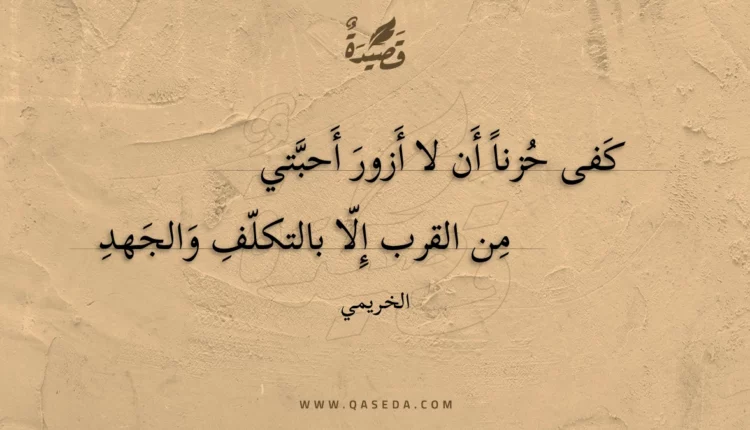 قَصِيْدَةٌ
كَفى حُزناً أَن لا أَزورَ أَحبَّتي
مِن القرب إِلّا بالتكلّفِ وَالجَهدِ
الخريمي
WWW.QASEDA.COM